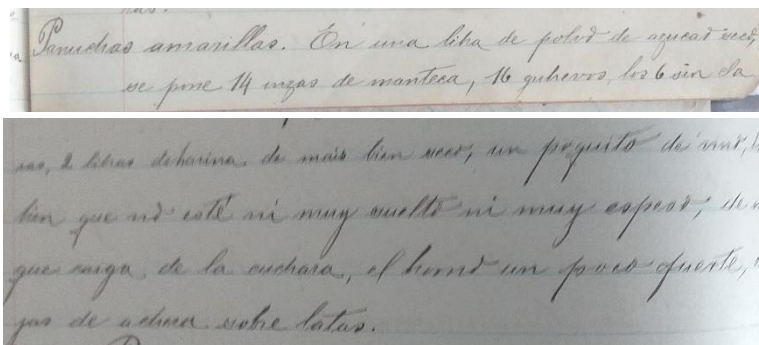 Panuchas amarillas. En una libra de polvo de azucar seco,
se pone 14 onzas de manteca, 16 guhevos, los 6 sin cla
ras, 2 libras de harina de mais bien seco, un poquito de vino,
bien que no esté ni muy suelto ni muy espeso, de
que caiga de la cuchara, el horno un poco fuerte,
jas de achira sobre latas.